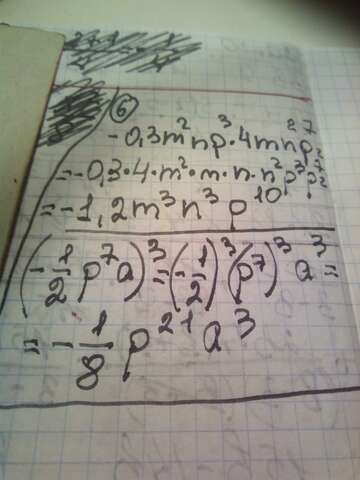 6
-0,3m²np³·4mn²p⁷
=-0,3·4·m²·m·n·n²p³p⁷=
=-1,2m³n³p¹⁰
(-1/2 p⁷a)³=(-1/2)³(p⁷)³a³=
=-1/8 p²¹a³